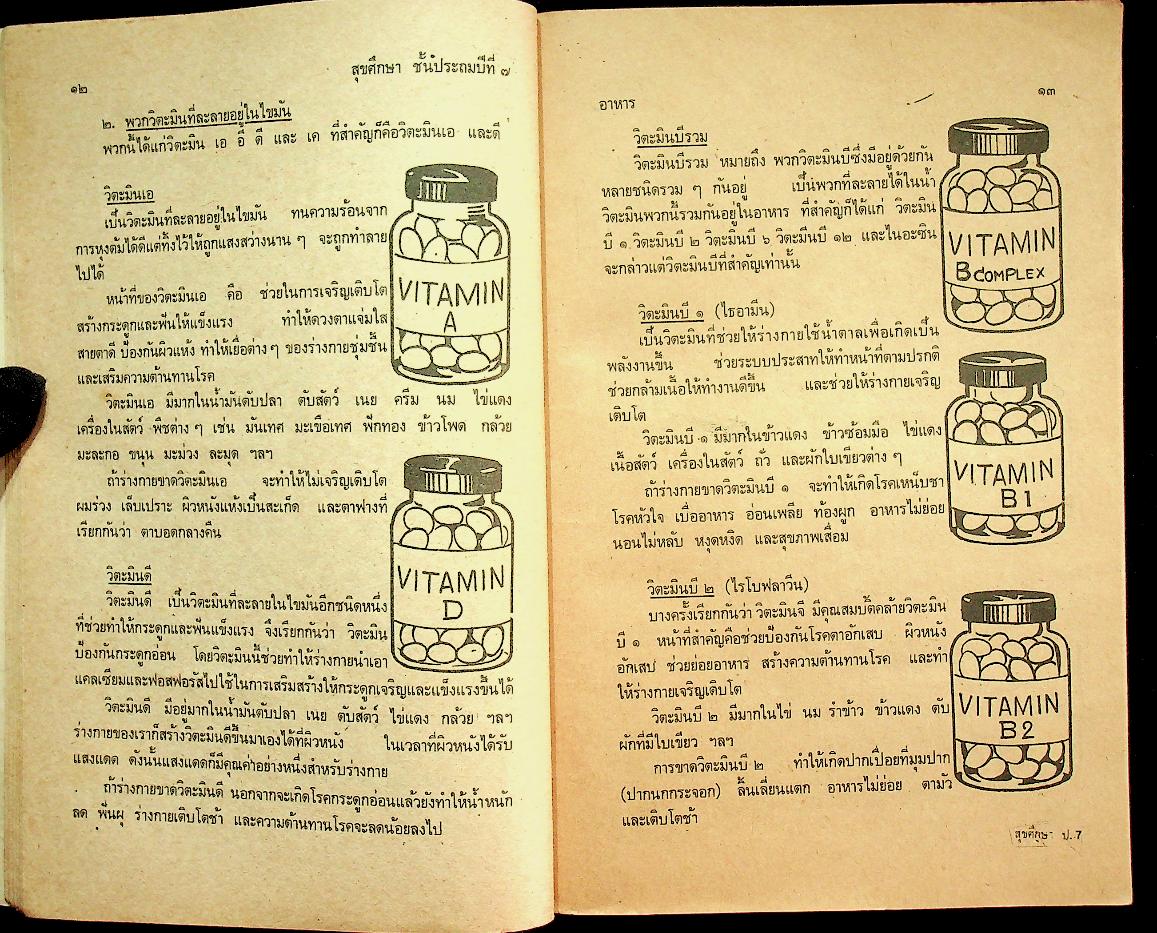 สุขศึกษา ชั้นประถมปีที่ ๗
๑๒
๒. พวกวิตะมินที่ละลายอยู่ในไขมัน
พวกนี้ได้แก่วิตะมิน เอ อี ดี และ เค ที่สำคัญก็คือวิตะมินเอ และดี
วิตะมินเอ
เป็นวิตะมินที่ละลายอยู่ในไขมัน ทนความร้อนจาก
การหุงต้มได้ดีแต่ทิ้งไว้ให้ถูกแสงสว่างนาน ๆ จะถูกทำลาย
ไปได้
หน้าที่ของวิตะมินเอ คือ ช่วยในการเจริญเติบโต
สร้างกระดูกและฟันให้แข็งแรง ทำให้ดวงตาแจ่มใส
สายตาดี ป้องกันผิวแห้ง ทำให้เยื่อต่าง ๆ ของร่างกายชุ่มชื้น
และเสริมความต้านทานโรค
VITAMIN
A
วิตะมินเอ มีมากในน้ำมันตับปลา ตับสัตว์ เนย ครีม นม ไข่แดง
เครื่องในสัตว์ พืชต่าง ๆ เช่น มันเทศ มะเขือเทศ ฟักทอง ข้าวโพด กล้วย
มะละกอ ขนุน มะม่วง ละมุด ฯลฯ
ถ้าร่างกายขาดวิตะมินเอ จะทำให้ไม่เจริญเติบโต
ผมร่วง เล็บเปราะ ผิวหนังแห้งเป็นสะเก็ด และตาฟางที่
เรียกกันว่า ตาบอดกลางคืน
วิตะมินดี
วิตะมินดี เป็นวิตะมินที่ละลายในไขมันอีกชนิดหนึ่ง
ที่ช่วยทำให้กระดูกและฟันแข็งแรง จึงเรียกกันว่า วิตะมิน
ป้องกันกระดูกอ่อน โดยวิตะมินนี้ช่วยทำให้ร่างกายนำเอา
VITAMIN
D
แคลเซียมและฟอสฟอรัสไปใช้ในการเสริมสร้างให้กระดูกเจริญและแข็งแรงขึ้นได้
วิตะมินดี มีอยู่มากในน้ำมันตับปลา เนย ตับสัตว์ ไข่แดง กล้วย ฯลฯ
ร่างกายของเราก็สร้างวิตะมินดีขึ้นมาเองได้ที่ผิวหนัง ในเวลาที่ผิวหนังได้รับ
แสงแดด ดังนั้นแสงแดดก็มีคุณค่าอย่างหนึ่งสำหรับร่างกาย
ถ้าร่างกายขาดวิตะมินดี นอกจากจะเกิดโรคกระดูกอ่อนแล้วยังทำให้น้ำหนัก
ลด ฟันผุ ร่างกายเติบโตช้า และความต้านทานโรคจะลดน้อยลงไป
อาหาร
๑๓
วิตะมินบีรวม
วิตะมินบีรวม หมายถึง พวกวิตะมินบีซึ่งมีอยู่ด้วยกัน
หลายชนิดรวม ๆ กันอยู่ เป็นพวกที่ละลายได้ในน้ำ
วิตะมินพวกนี้รวมกันอยู่ในอาหาร ที่สำคัญก็ได้แก่ วิตะมิน
บี ๑ วิตะมินบี ๒ วิตะมินบี ๖ วิตะมินบี ๑๒ และไนอะซิน
จะกล่าวแต่วิตะมินบีที่สำคัญเท่านั้น
VITAMIN
B COMPLEX
วิตะมินบี ๑ (ไธอามีน)
เป็นวิตะมินที่ช่วยให้ร่างกายใช้น้ำตาลเพื่อเกิดเป็น
พลังงานขึ้น ช่วยระบบประสาทให้ทำหน้าที่ตามปรกติ
ช่วยกล้ามเนื้อให้ทำงานดีขึ้น และช่วยให้ร่างกายเจริญ
เติบโต
วิตะมินบี ๑ มีมากในข้าวแดง ข้าวซ้อมมือ ไข่แดง
เนื้อสัตว์ เครื่องในสัตว์ ถั่ว และผักใบเขียวต่าง ๆ
ถ้าร่างกายขาดวิตะมินบี ๑ จะทำให้เกิดโรคเหน็บชา
โรคหัวใจ เบื่ออาหาร อ่อนเพลีย ท้องผูก อาหารไม่ย่อย
นอนไม่หลับ หงุดหงิด และสุขภาพเสื่อม
VITAMIN
B1
วิตะมินบี ๒ (ไรโบฟลาวีน)
บางครั้งเรียกกันว่า วิตะมินจี มีคุณสมบัติคล้ายวิตะมิน
บี ๑ หน้าที่สำคัญคือช่วยป้องกันโรคตาอักเสบ ผิวหนัง
อักเสบ ช่วยย่อยอาหาร สร้างความต้านทานโรค และทำ
ให้ร่างกายเจริญเติบโต
วิตะมินบี ๒ มีมากในไข่ นม รำข้าว ข้าวแดง ตับ
ผักที่มีใบเขียว ฯลฯ
การขาดวิตะมินบี ๒ ทำให้เกิดปากเปื่อยที่มุมปาก
(ปากนกกระจอก) ลิ้นเลี่ยนแตก อาหารไม่ย่อย ตามัว
และเติบโตช้า
VITAMIN
B2
สุขศึกษา ป.7